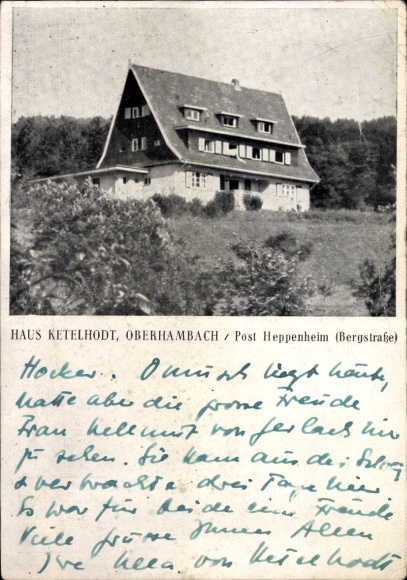 HAUS KETELHODT, OBERHAMBACH / Post Heppenheim (Bergstraße)
Hocker. O muss liegt heute,
hatte aber die grosse Freude
Frau Hellmut von Gerlach hier
zu sehen. Sie kam aus der
& verbrachte drei Tage hier
Es war für beide eine Freude
Viele Grüsse Ihnen Allen
Ihre Hella von Ketelhodt